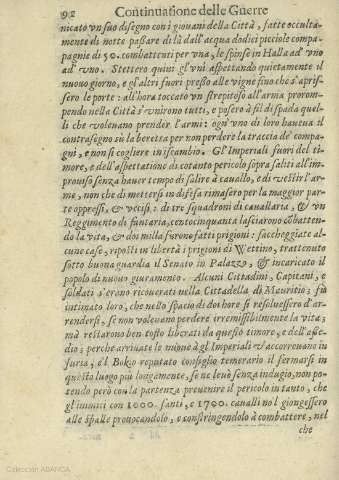 92 Continuatione delle Guerre
nicato vn suo disegno con i giouani della Città, fatte occulta-
mente di notte passare di là dall'acqua dodici picciole compa-
gnie di 50. combattenti per vna, le spinse in Halla ad' vno
ad' vno. Stettero quini gl'vni aspettando quietamente il
nuouo giorno, e gl'altri fuori presso alle vigne fino che s'apris-
sero le porte: all'hora toccato vn strepitoso all'arma prorom-
pendo nella Città s'vnirono tutti, e passero à fil di spada quel-
li che voleuano prender l'armi: ogn'vno di loro haueua il
contrasegno sù la beretta per non perdere la traccia de' compa-
gni, e non si cogliere in iscambio. Gl'Imperiali fuori del ti-
more, e dell'aspettatione di cotanto pericolo sopra saliti all'im-
prouiso senza hauer tempo di salire à cauallo, e di vestir l'ar-
me, non che di mettersi in difesa rimasero per la maggior par-
te oppressi, & vccisi: di tre squadroni di cauallaria, & vn
Regimento di fanteria, centocinquanta lasciarono cōbatten-
do la vita, & doi milla furono fatti prigioni: saccheggiate al-
cune case, riposti in libertà i prigioni di Wettino, trattenuto
sotto buona guardia il Senato in Palazzo, & incaricato il
popolo di nuouo giuramento. Alcuni Cittadini, Capitani, e
soldati s'erano ricourati nella Cittadella di Mauritio; fù
intimato loro, che nello spacio di doi hore si risoluessero d'ar-
rendersi, se non voleuano perdere irremissibilmente la vita;
mà restarono ben tosto liberati da questo timore, e dell'asse-
dio; perche arriuate le nuoue à gl'Imperiali v'accorreuano in
furia, e'l Bokio reputato consiglio temerario il fermarsi in
questo luogo più longamente, se ne leuò senza indugio, non po-
tendo però con la partenza preuenire il pericolo in tanto, che
gl'inimici con 1000. fanti, e 1700. caualli no'l giongessero
alle spalle prouocandolo, e constringendolo à combattere, nel
che
Colección ABANCA